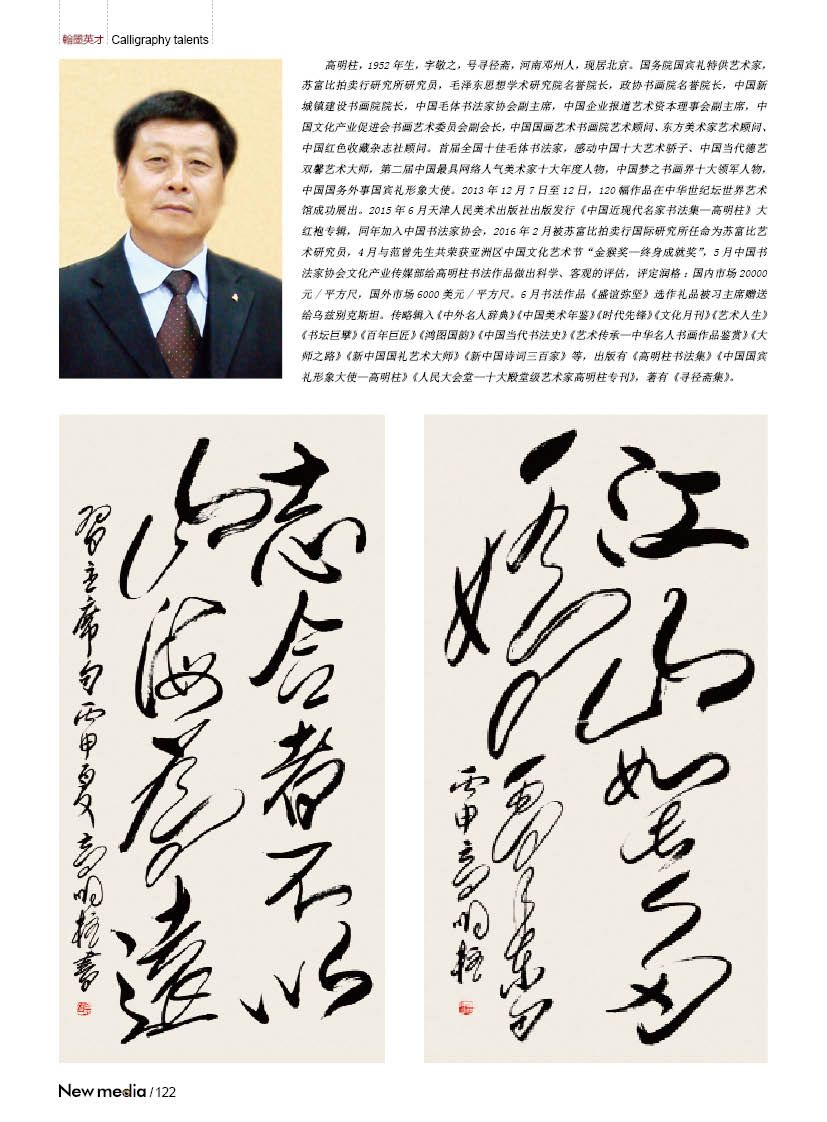 翰墨英才 Calligraphy talents
高明柱，1952 年生，字敬之，号寻径斋，河南邓州人，现居北京。国务院国宾礼特供艺术家，
苏富比拍卖行研究所研究员，毛泽东思想学术研究院名誉院长，政协书画院名誉院长，中国新
城镇建设书画院院长，中国毛体书法家协会副主席，中国企业报道艺术资本理事会副主席，中
国文化产业促进会书画艺术委员会副会长，中国国画艺术书画院艺术顾问、东方美术家艺术顾问、
中国红色收藏杂志社顾问。首届全国十佳毛体书法家，感动中国十大艺术骄子、中国当代德艺
双馨艺术大师，第二届中国最具网络人气美术家十大年度人物，中国梦之书画界十大领军人物，
中国国务外事国宾礼形象大使。2013 年 12 月 7 日至 12 日，120 幅作品在中华世纪坛世界艺术
馆成功展出。2015 年 6 月天津人民美术出版社出版发行《中国近现代名家书法集—高明柱》大
红袍专辑，同年加入中国书法家协会，2016 年 2 月被苏富比拍卖行国际研究所任命为苏富比艺
术研究员，4 月与范曾先生共荣获亚洲区中国文化艺术节“金猴奖—终身成就奖”，5 月中国书
法家协会文化产业传媒部给高明柱书法作品做出科学、客观的评估，评定润格：国内市场 20000
元／平方尺，国外市场 6000 美元／平方尺。6 月书法作品《盛谊弥坚》选作礼品被习主席赠送
给乌兹别克斯坦。传略辑入《中外名人辞典》《中国美术年鉴》《时代先锋》《文化月刊》《艺术人生》
《书坛巨擘》《百年巨匠》《鸿图国韵》《中国当代书法史》《艺术传承—中华名人书画作品鉴赏》《大
师之路》《新中国国礼艺术大师》《新中国诗词三百家》等，出版有《高明柱书法集》《中国国宾
礼形象大使—高明柱》《人民大会堂—十大殿堂级艺术家高明柱专刊》，著有《寻径斋集》。
志合者不以
山海為遠
習主席句丙申夏高明柱書
江山如此多
嬌
丙申高明柱
New media / 122